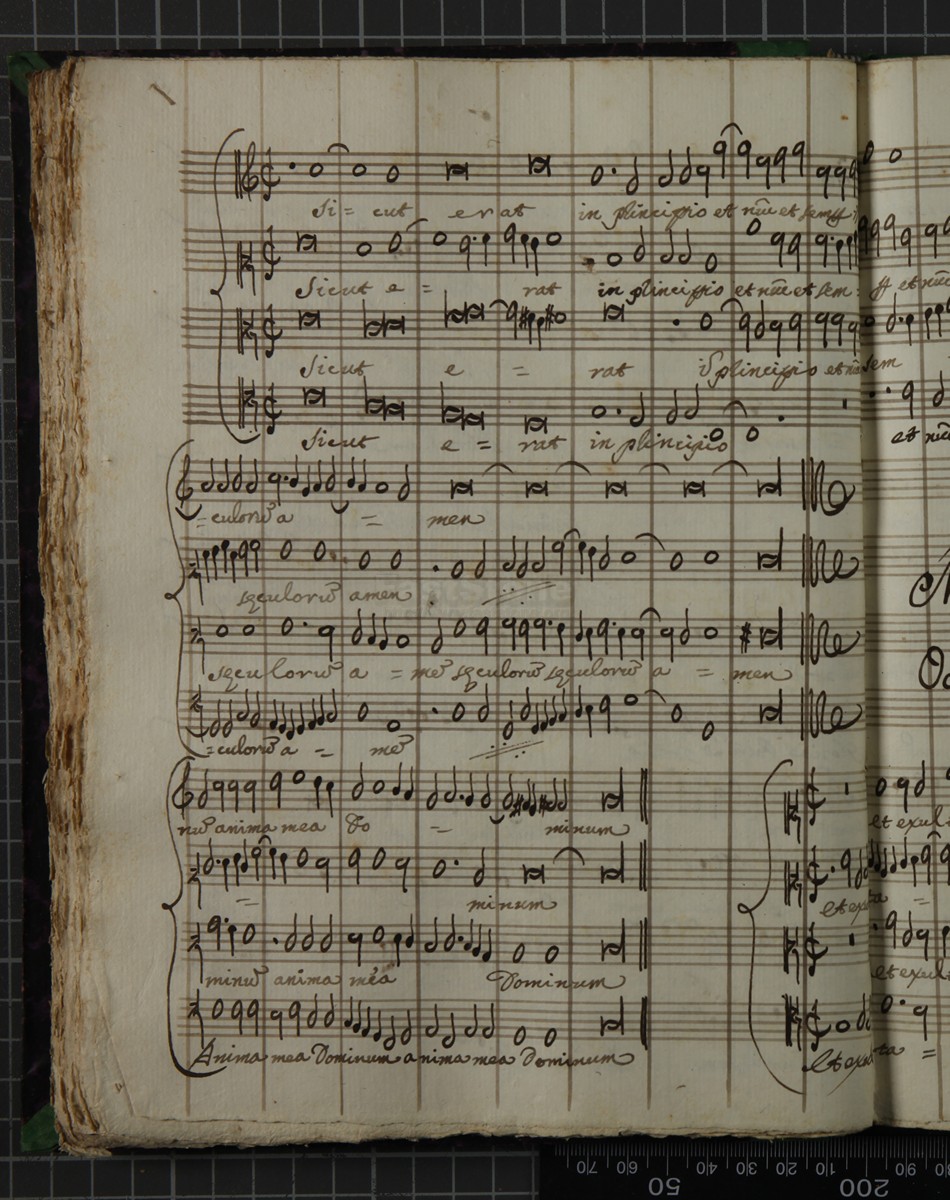 Si = cut erat in plincipio et nūc et semꝑ
Sicut e = rat in plincipio et nūc et sem: ꝑ et nūc
Sicut e = rat ĩ plincipio et nū sem
Sicut e = rat in plincipio et nūc
= culorũ a = men
sęculorũ amen
sęculorũ a = mẽ sęculorũ sęculorũ a = men
= culorũ a = mẽ
nũ anima mea Do = minum et exul
= minum et exa
minũ anima mea Dominum et exul
Anima mea Dominum anima mea Dominum et exulta =
70 60 50 40 30 20 10 90 80
50 200